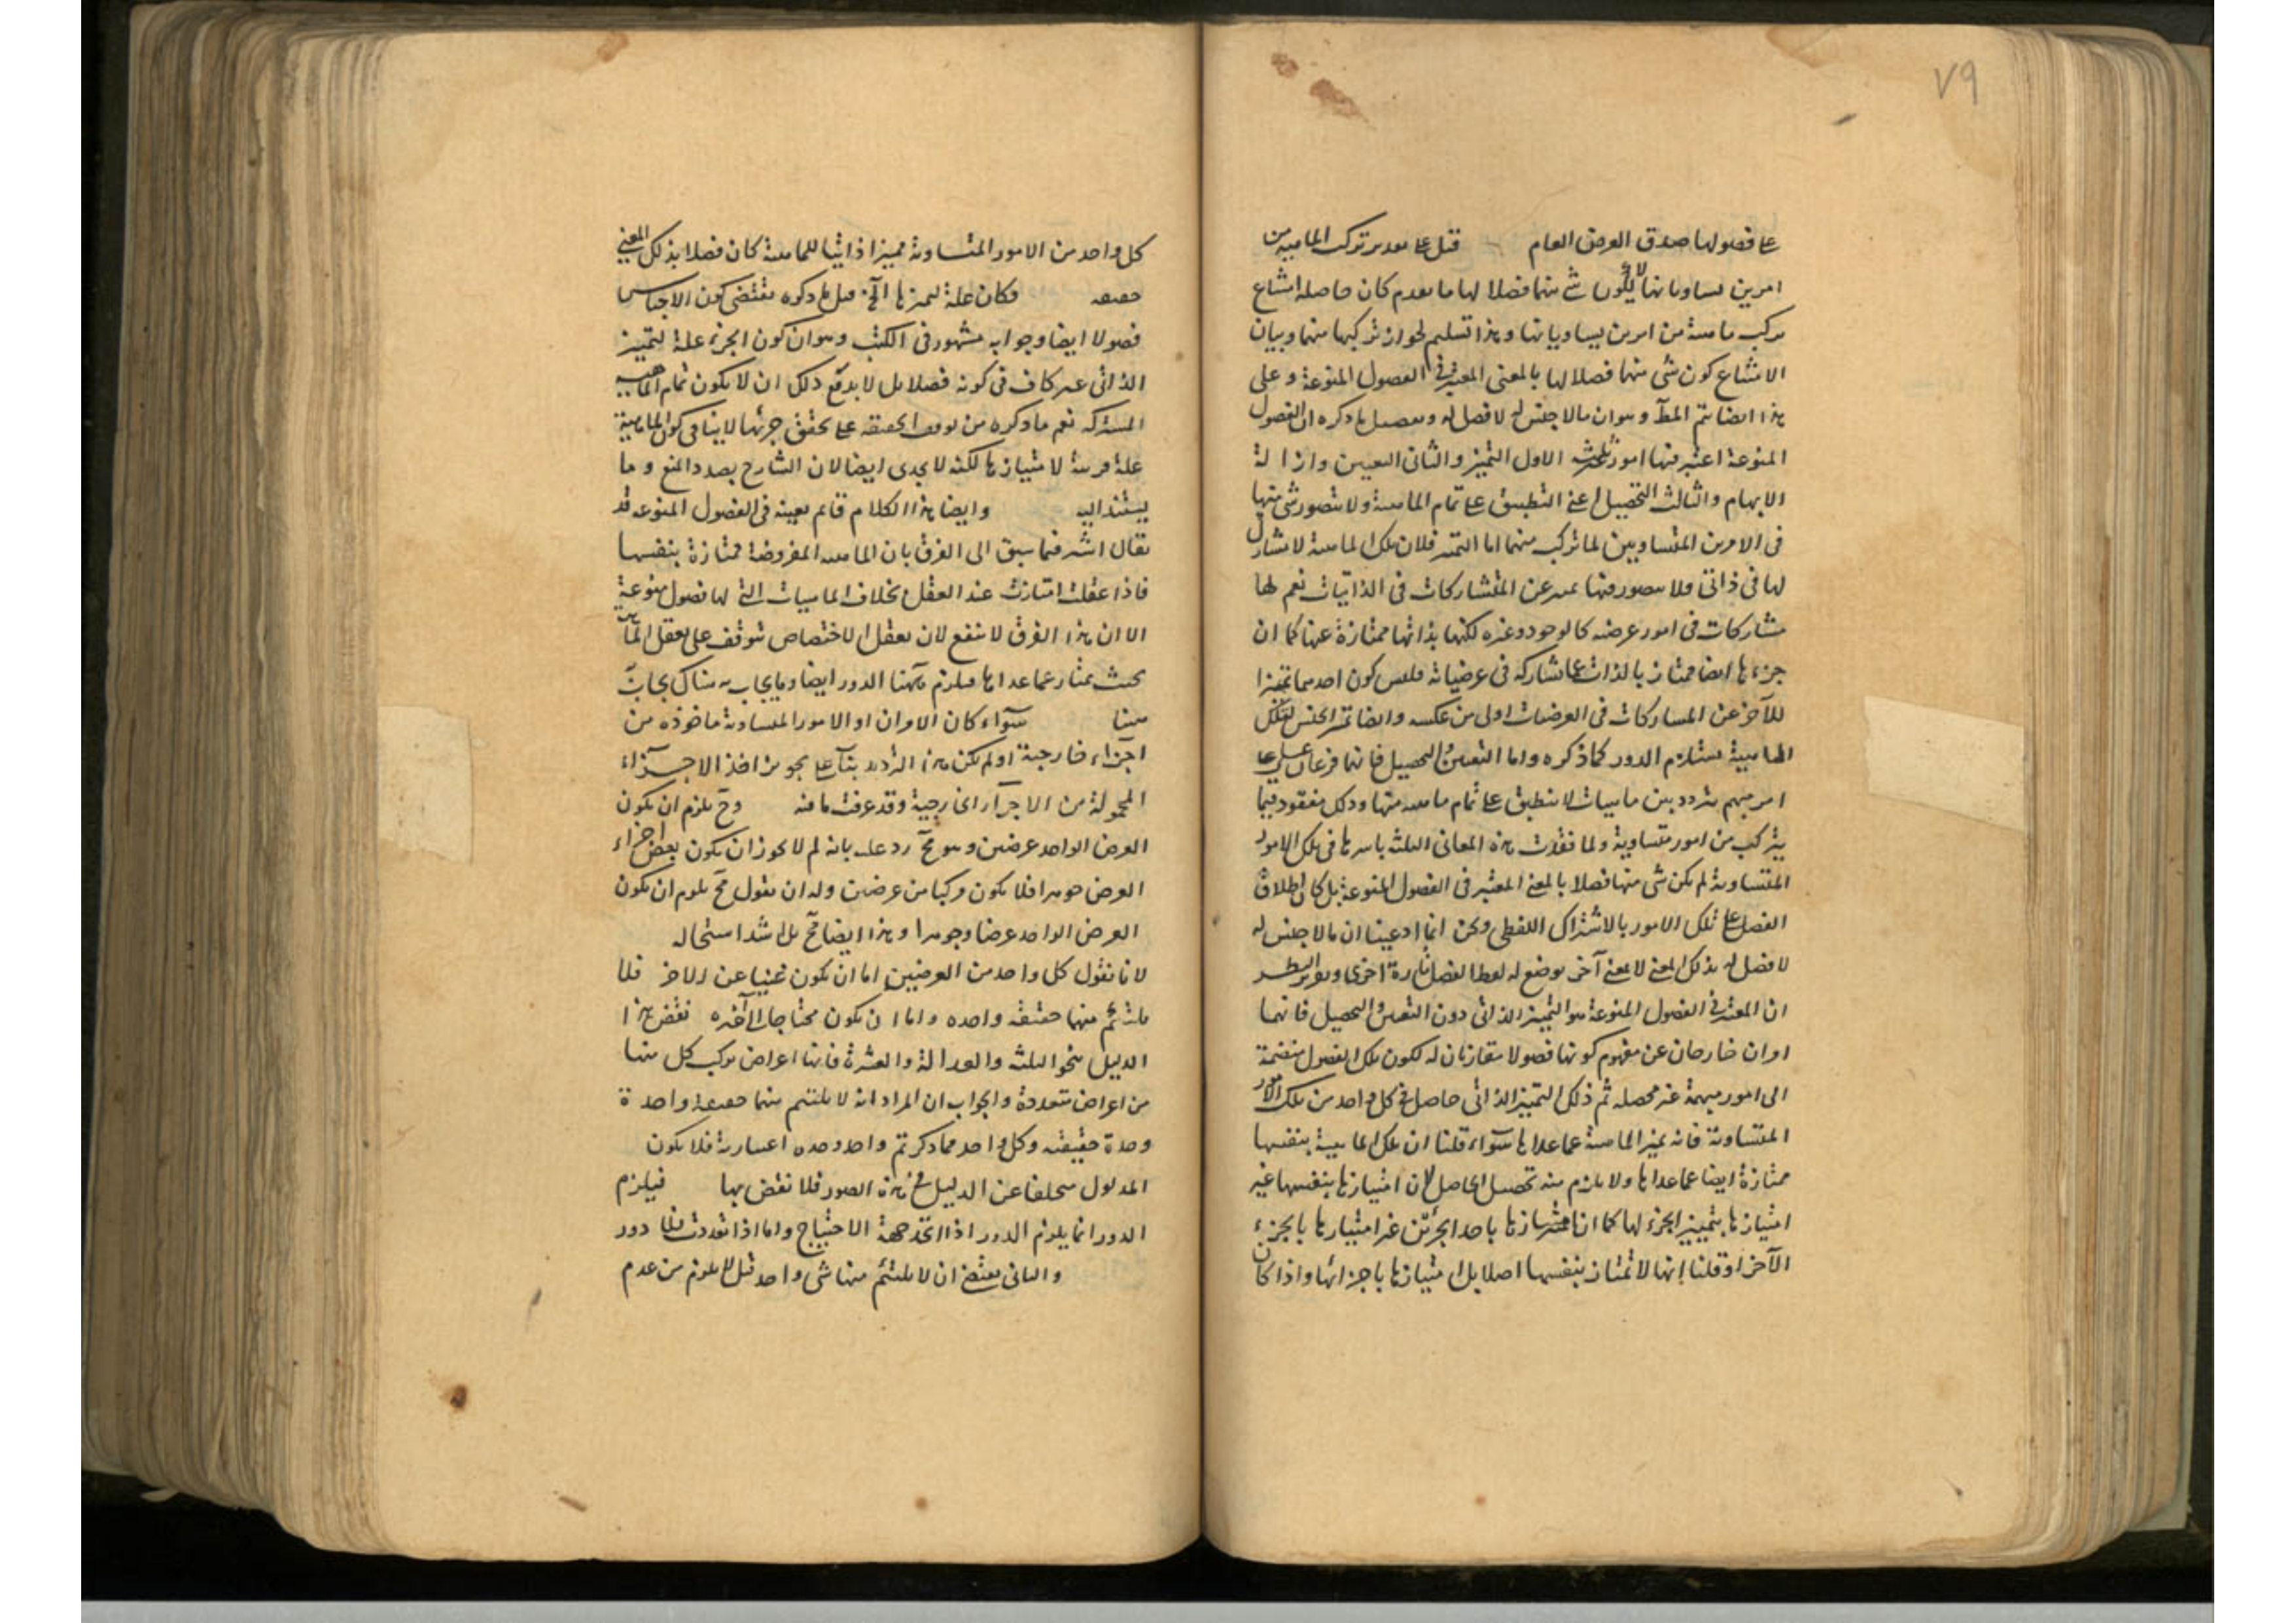 ٧٩
على فصولها صدق العرض العام قيل على تقدير تركب الماهية من
امرين يساويانها لا يكون شئ منهما فصلا لها ما تقدم كان حاصله امتناع
تركب ماهية من امرين يساويانها وهذا تسليم لجواز تركبها منهما وبيان
الامتناع كون شئ منهما فصلا لها بالمعنى المعتبر في الفصول المنوعة وعلى
هذا ايضا يتم المط وهو ان مالا جنس له لا فصل له وتفصيل ما ذكره ان الفصول
المنوعة اعتبر فيها امور ثلث الاول التميز والثانى التعيين وازالة
الابهام والثالث التحصيل اعنى التطبيق على تمام الماهية ولا يتصور شئ منها
فى الامرين المتساويين لما تركب منهما اما التميز فلان تلك الماهية لا مشارك
لها فى ذاتى ولا يتصور فيها تميز عن المتشاركات فى الذاتيات نعم لها
مشاركات فى امور عرضية كالوجود وغيره لكنها بذاتها ممتازة عنها كما ان
جزءها ايضا ممتاز بالذات عما يشاركه فى عرضياته فليس كون احدهما مميزا
للآخر عن المشاركات فى العرضيات اولى من عكسه وايضا تميز الجنس لتلك
الماهية يستلزم الدور كما ذكره واما التعيين والتحصيل فانهما فرعان على
امر مبهم متردد بين ماهيات لا ينطبق على تمام ماهية منها وذلك مفقود فيما
يتركب من امور متساوية ولما فقدت هذه المعانى الثلثة باسرها فى تلك الامور
المتساوية لم يكن شئ منها فصلا بالمعنى المعتبر فى الفصول المنوعة بل كان اطلاق
الفصل على تلك الامور بالاشتراك اللفظى ونحن انما ادعينا ان مالا جنس له
لا فصل له بذلك المعنى لا بمعنى آخر يوضع له لفظ الفصل تارة اخرى وتقرير النظر
ان المعتبر فى الفصول المنوعة هو التميز الذاتى دون التعيين والتحصيل فانهما
امران خارجان عن مفهوم كونها فصولا مقارنان له لكون تلك الفصول منضمة
الى امور مبهمة غير محصلة ثم ذلك التميز الذاتى حاصل فى كل واحد من تلك الامور
المتساوية فانه يميز الماهية عما عداها سواء قلنا ان تلك الماهية بنفسها
ممتازة ايضا عما عداها ولا يلزم منه تحصيل الحاصل لان امتيازها بنفسها غير
امتيازها بتمييز الجزء لها كما ان امتيازها باحد الجزئين غير امتيازها بالجزء
الآخر او قلنا انها لا تمتاز بنفسها اصلا بل امتيازها باجزائها واذا كان
كل واحد من الامور المتساوية مميزا ذاتيا للماهية كان فصلا بذلك المعنى
حقيقة فكان علة لتميزها الخ قيل ما ذكره يقتضى كون الاجناس
فصولا ايضا وجوابه مشهور فى الكتب وهو ان كون الجزء علة لتميز
الذاتى غير كاف فى كونه فصلا بل لا بد مع ذلك ان لا يكون تمام الماهية
المشتركة نعم ما ذكره من توقف الحقيقة على تحقق جزئها لا ينافى كون الماهية
علة قريبة لامتيازها لكنه لا يجدى ايضا لان الشارح بصدد المنع وما
يستند اليه وايضا هذا الكلام قائم بعينه فى الفصول المنوعة قد
يقال اشير فيما سبق الى الفرق بان الماهية المفروضة ممتازة بنفسها
فاذا عقلت امتازت عند العقل بخلاف الماهيات التى لها فصول منوعة
الا ان هذا الفرق لا ينفع لان تعقل الاختصاص يتوقف على تعقل الماهية
بحيث تمتاز عما عداها فيلزم ههنا الدور ايضا وما يجاب به هناك يجاب به
هنا سواء كان الامران او الامور المتساوية ماخوذه من
اجزاء خارجية او لم يكن هذا الترديد بناء على تجويز اخذ الاجزاء
المحمولة من الاجزاء الخارجية وقد عرفت ما فيه وح يلزم ان يكون
العرض الواحد عرضين وهو مح رد عليه بانه لم لا يجوز ان يكون بعض اجزاء
العرض جوهرا فلا يكون مركبا من عرضين وله ان يقول فح يلزم ان يكون
العرض الواحد عرضا وجوهرا وهذا ايضا مح بل اشد استحالة
لانا نقول كل واحد من العرضين اما ان يكون غنيا عن الاخر فلا
يلتئم منهما حقيقة واحده واما ان يكون محتاجا الى آخره نقض هذا
الدليل بنحو الثلثة والعدالة والعشرة فانها اعراض تركب كل منها
من اعراض متعددة والجواب ان المراد انه لا يلتئم منهما حقيقة واحدة
وحدة حقيقية وكل واحد مما ذكرتم واحد وحده اعتبارية فلا يكون
المدلول متخلفا عن الدليل فى هذه الصور فلا نقض بها فيلزم
الدور انما يلزم الدور اذا اتحد جهة الاحتياج واما اذا تعددت فلا دور
والثانى يقتضى ان لا يلتئم منها شئ واحد قيل لا يلزم من عدم